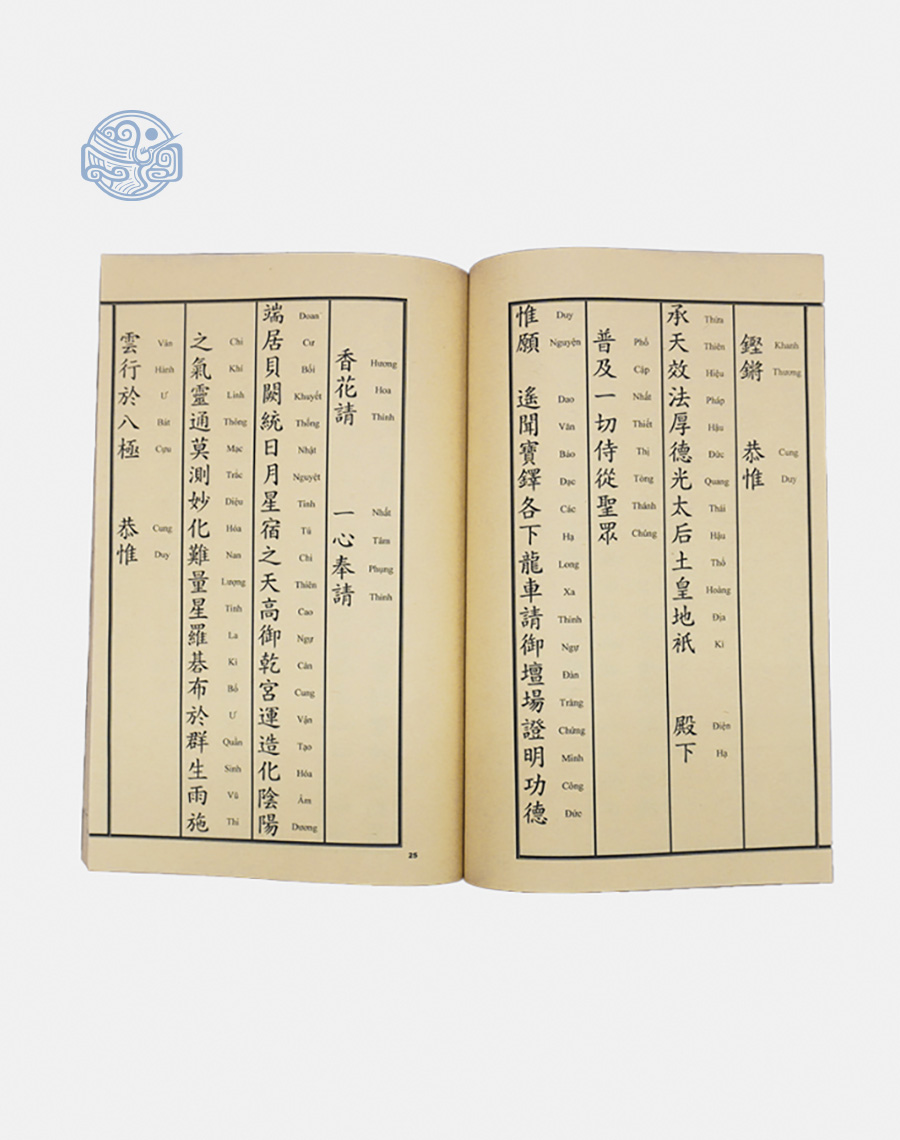 鏗鏘 恭惟
Khanh Thương Cung Duy
承天效法厚德光太后土皇地祇 殿下
Thừa Thiên Hiệu Pháp Hậu Đức Quang Thái Hậu Thổ Hoàng Địa Kì Điện Hạ
普及一切侍從聖眾
Phổ Cập Nhất Thiết Thị Tòng Thánh Chúng
惟願 遙聞寶鐸各下龍車請御壇場證明功德
Duy Nguyện Dao Văn Bảo Đạc Các Hạ Long Xa Thỉnh Ngự Đàn Tràng Chứng Minh Công Đức
香花請 一心奉請
Hương Hoa Thỉnh Nhất Tâm Phụng Thỉnh
端居貝闕統日月星宿之天高御乾宮運造化陰陽
Đoan Cư Bối Khuyết Thống Nhật Nguyệt Tinh Tú Chi Thiên Cao Ngự Càn Cung Vận Tạo Hóa Âm Dương
之氣靈通莫測妙化難量星羅碁布於群生雨施
Chi Khí Linh Thông Mạc Trắc Diệu Hóa Nan Lượng Tinh La Kì Bố Ư Quần Sinh Vũ Thi
雲行於八極 恭惟
Vân Hành Ư Bát Cựu Cung Duy
25